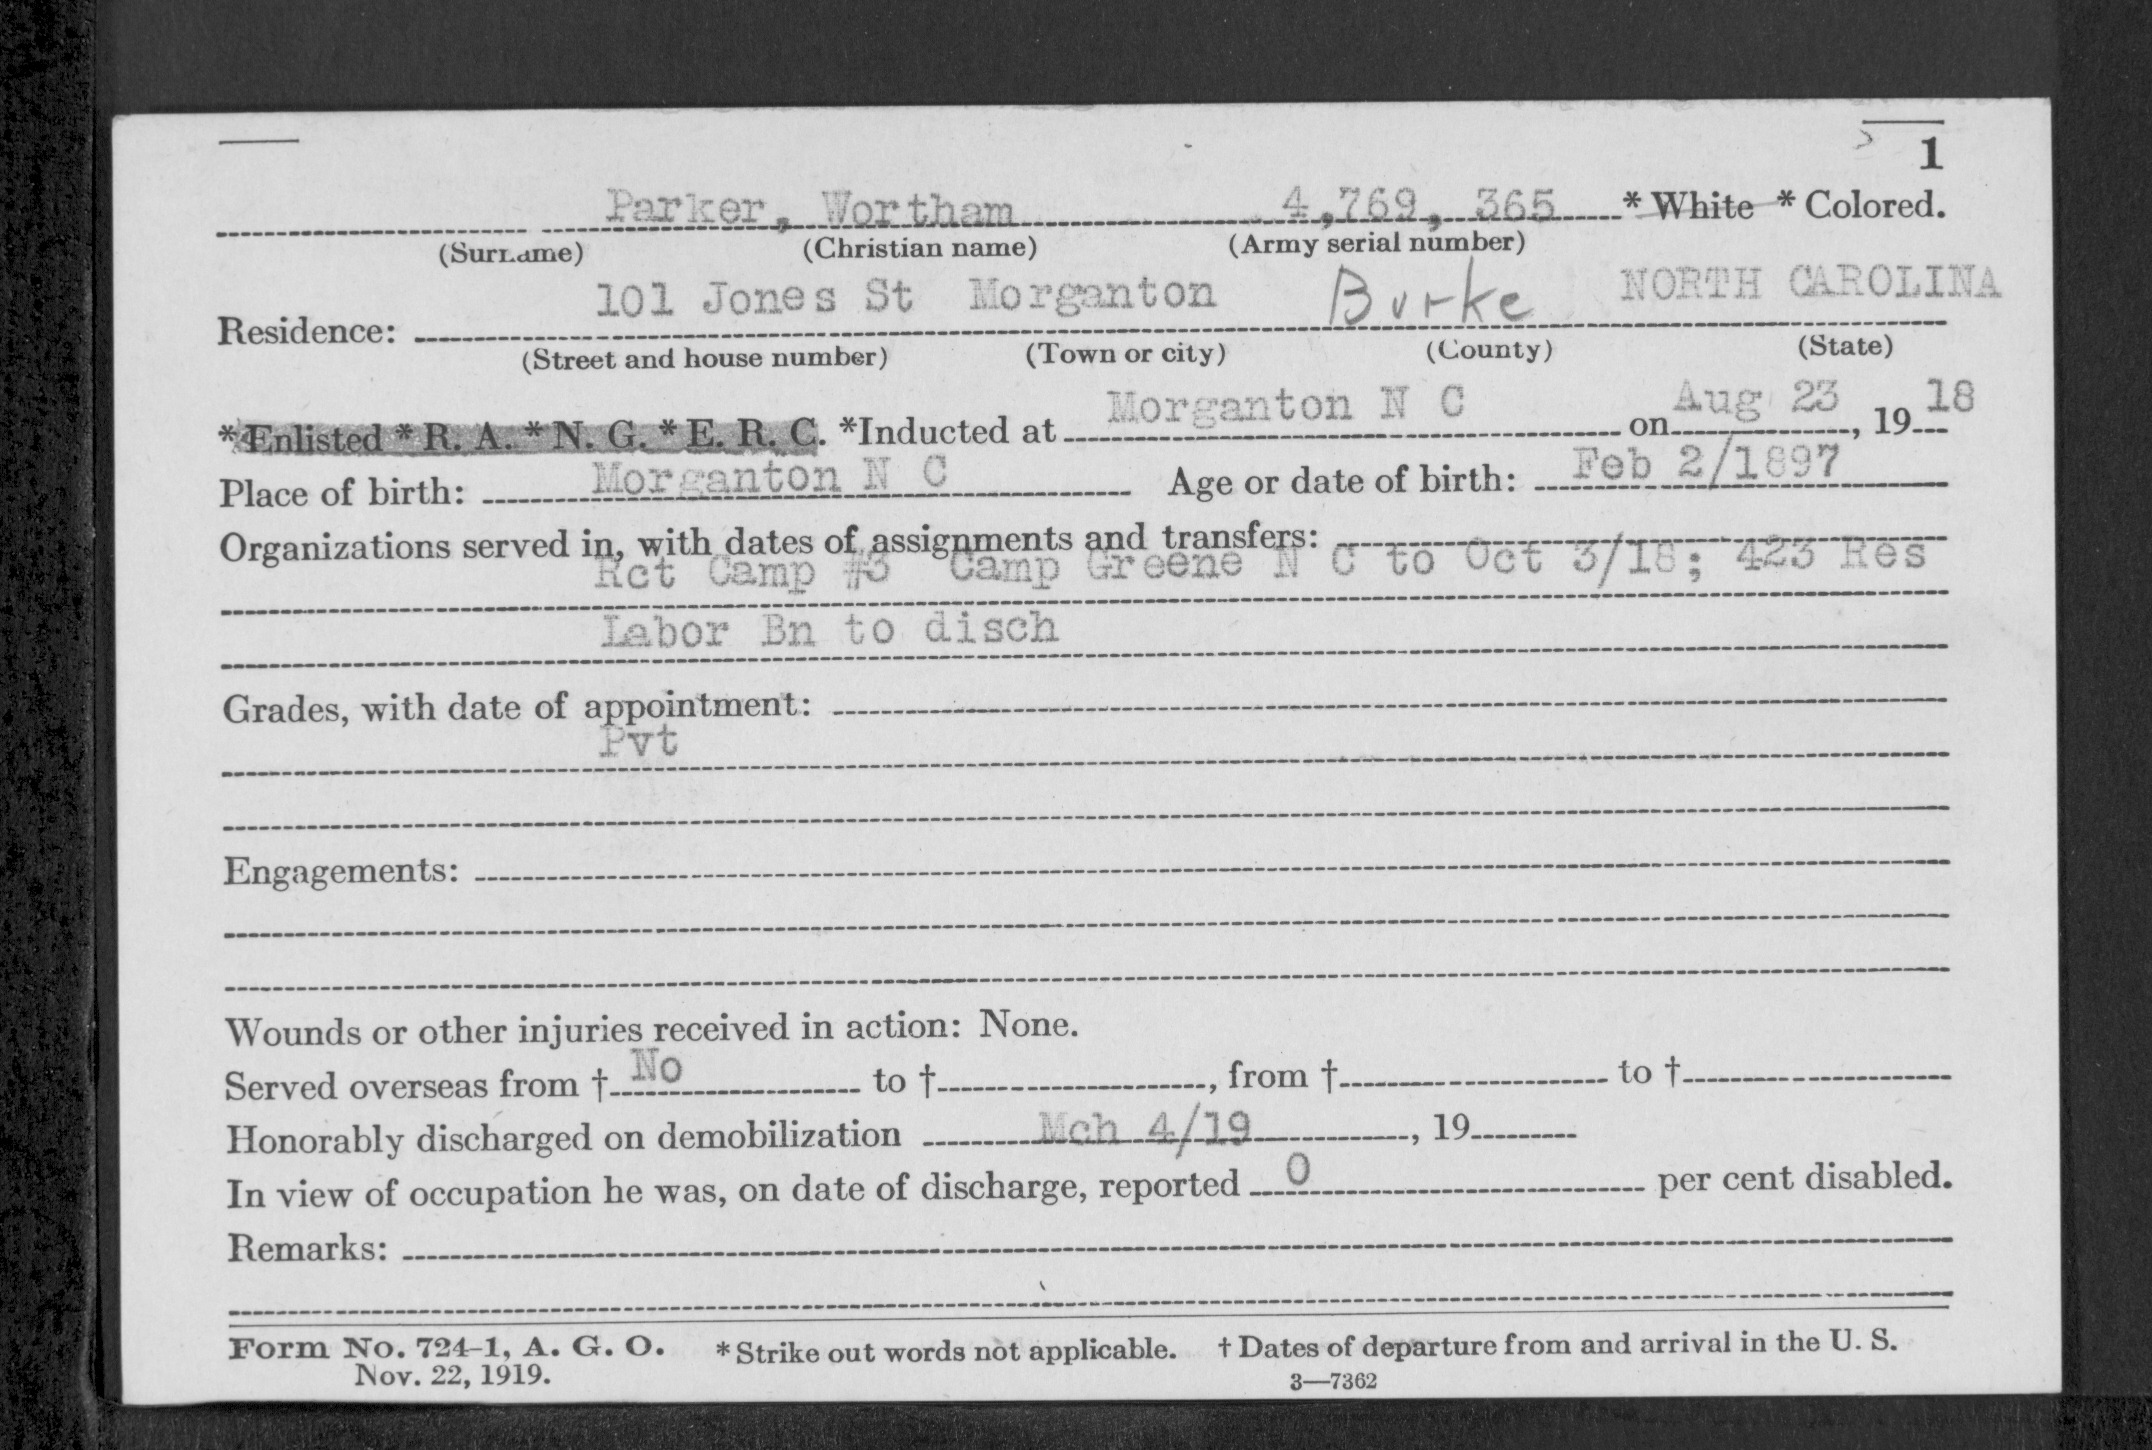 1
Parker, Wortham 4,769, 365 * White * Colored.
(Surname) (Christian name) (Army serial number)
101 Jones St Morganton Burke NORTH CAROLINA
Residence:
(Street and house number) (Town or city) (County) (State)
*Enlisted * R. A. * N. G. * E. R. C. *Inducted at Morganton N C on Aug 23, 19 18
Place of birth: Morganton N C Age or date of birth: Feb 2/1897
Organizations served in, with dates of assignments and transfers:
Rct Camp #3 Camp Greene N C to Oct 3/18; 423 Res
Labor Bn to disch
Grades, with date of appointment:
Pvt
Engagements:
Wounds or other injuries received in action: None.
Served overseas from † No to †, from † to †
Honorably discharged on demobilization Mch 4/19, 19
In view of occupation he was, on date of discharge, reported 0 per cent disabled.
Remarks:
Form No. 724-1, A. G. O. * Strike out words not applicable. † Dates of departure from and arrival in the U. S.
Nov. 22, 1919. 3—7362